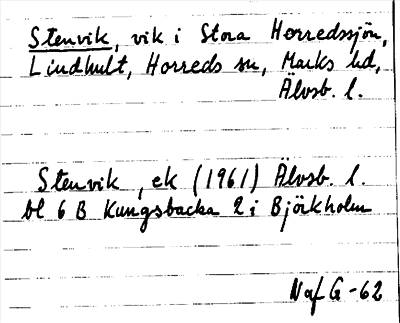 Stenvik, vik i Stora Horredssjön,
Lindhult, Horreds sn, Marks hd,
Älvsb. l.
Stenvik, ek (1961) Älvsb. l.
bl 6 B Kungsbacka 2 i Björkholm
Naf G-62